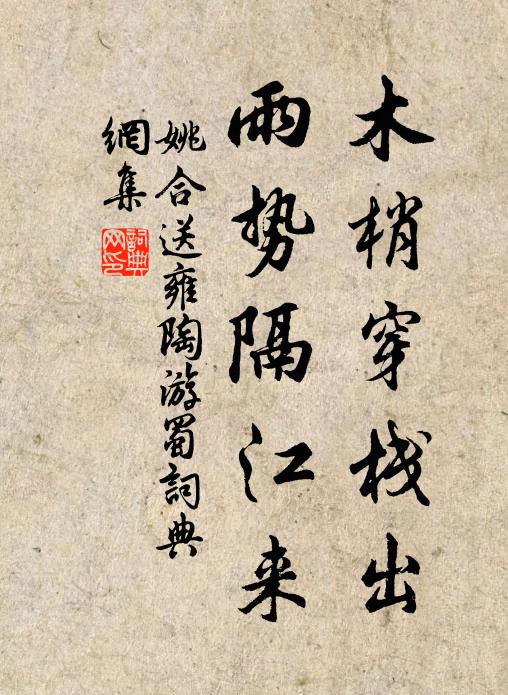 木梢穿栈出
雨势隔江来
姚合送雍陶游蜀詞典
網集
詞典网印